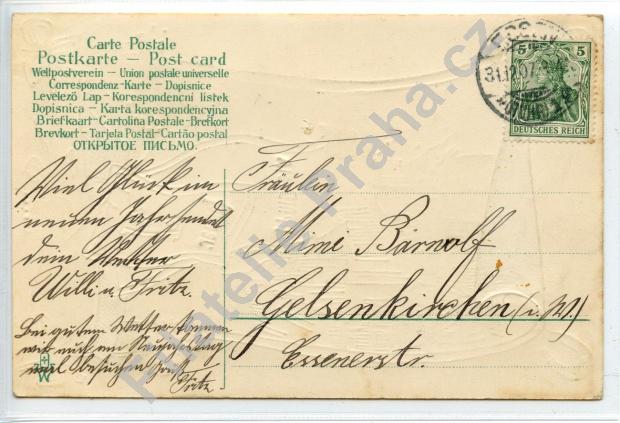 Carte Postale
Postkarte – Post card
Weltpostverein – Union postale universelle
Correspondenz-Karte – Dopisnice
Levelező Lap – Korespondenční lístek
Dopisnica – Karta korespondencyjna
Briefkaart – Cartolina Postale – Brefkort
Brevkort – Tarjeta Postal – Cartão postal
ОТКРЫТОЕ ПИСЬМО.
ESSEN
31.12.07
5 5
DEUTSCHES REICH
Viel Glück im
neuen Jahr sendet
dein Vetter
Willi u. Fritz.
Bei gutem Wetter kommen
wir am Neujahrstag
mal besuchen
Fritz
Fräulein
Mimi Bärwolf
Gelsenkirchen (i. W.)
Essenerstr.
Filatelie Praha.cz